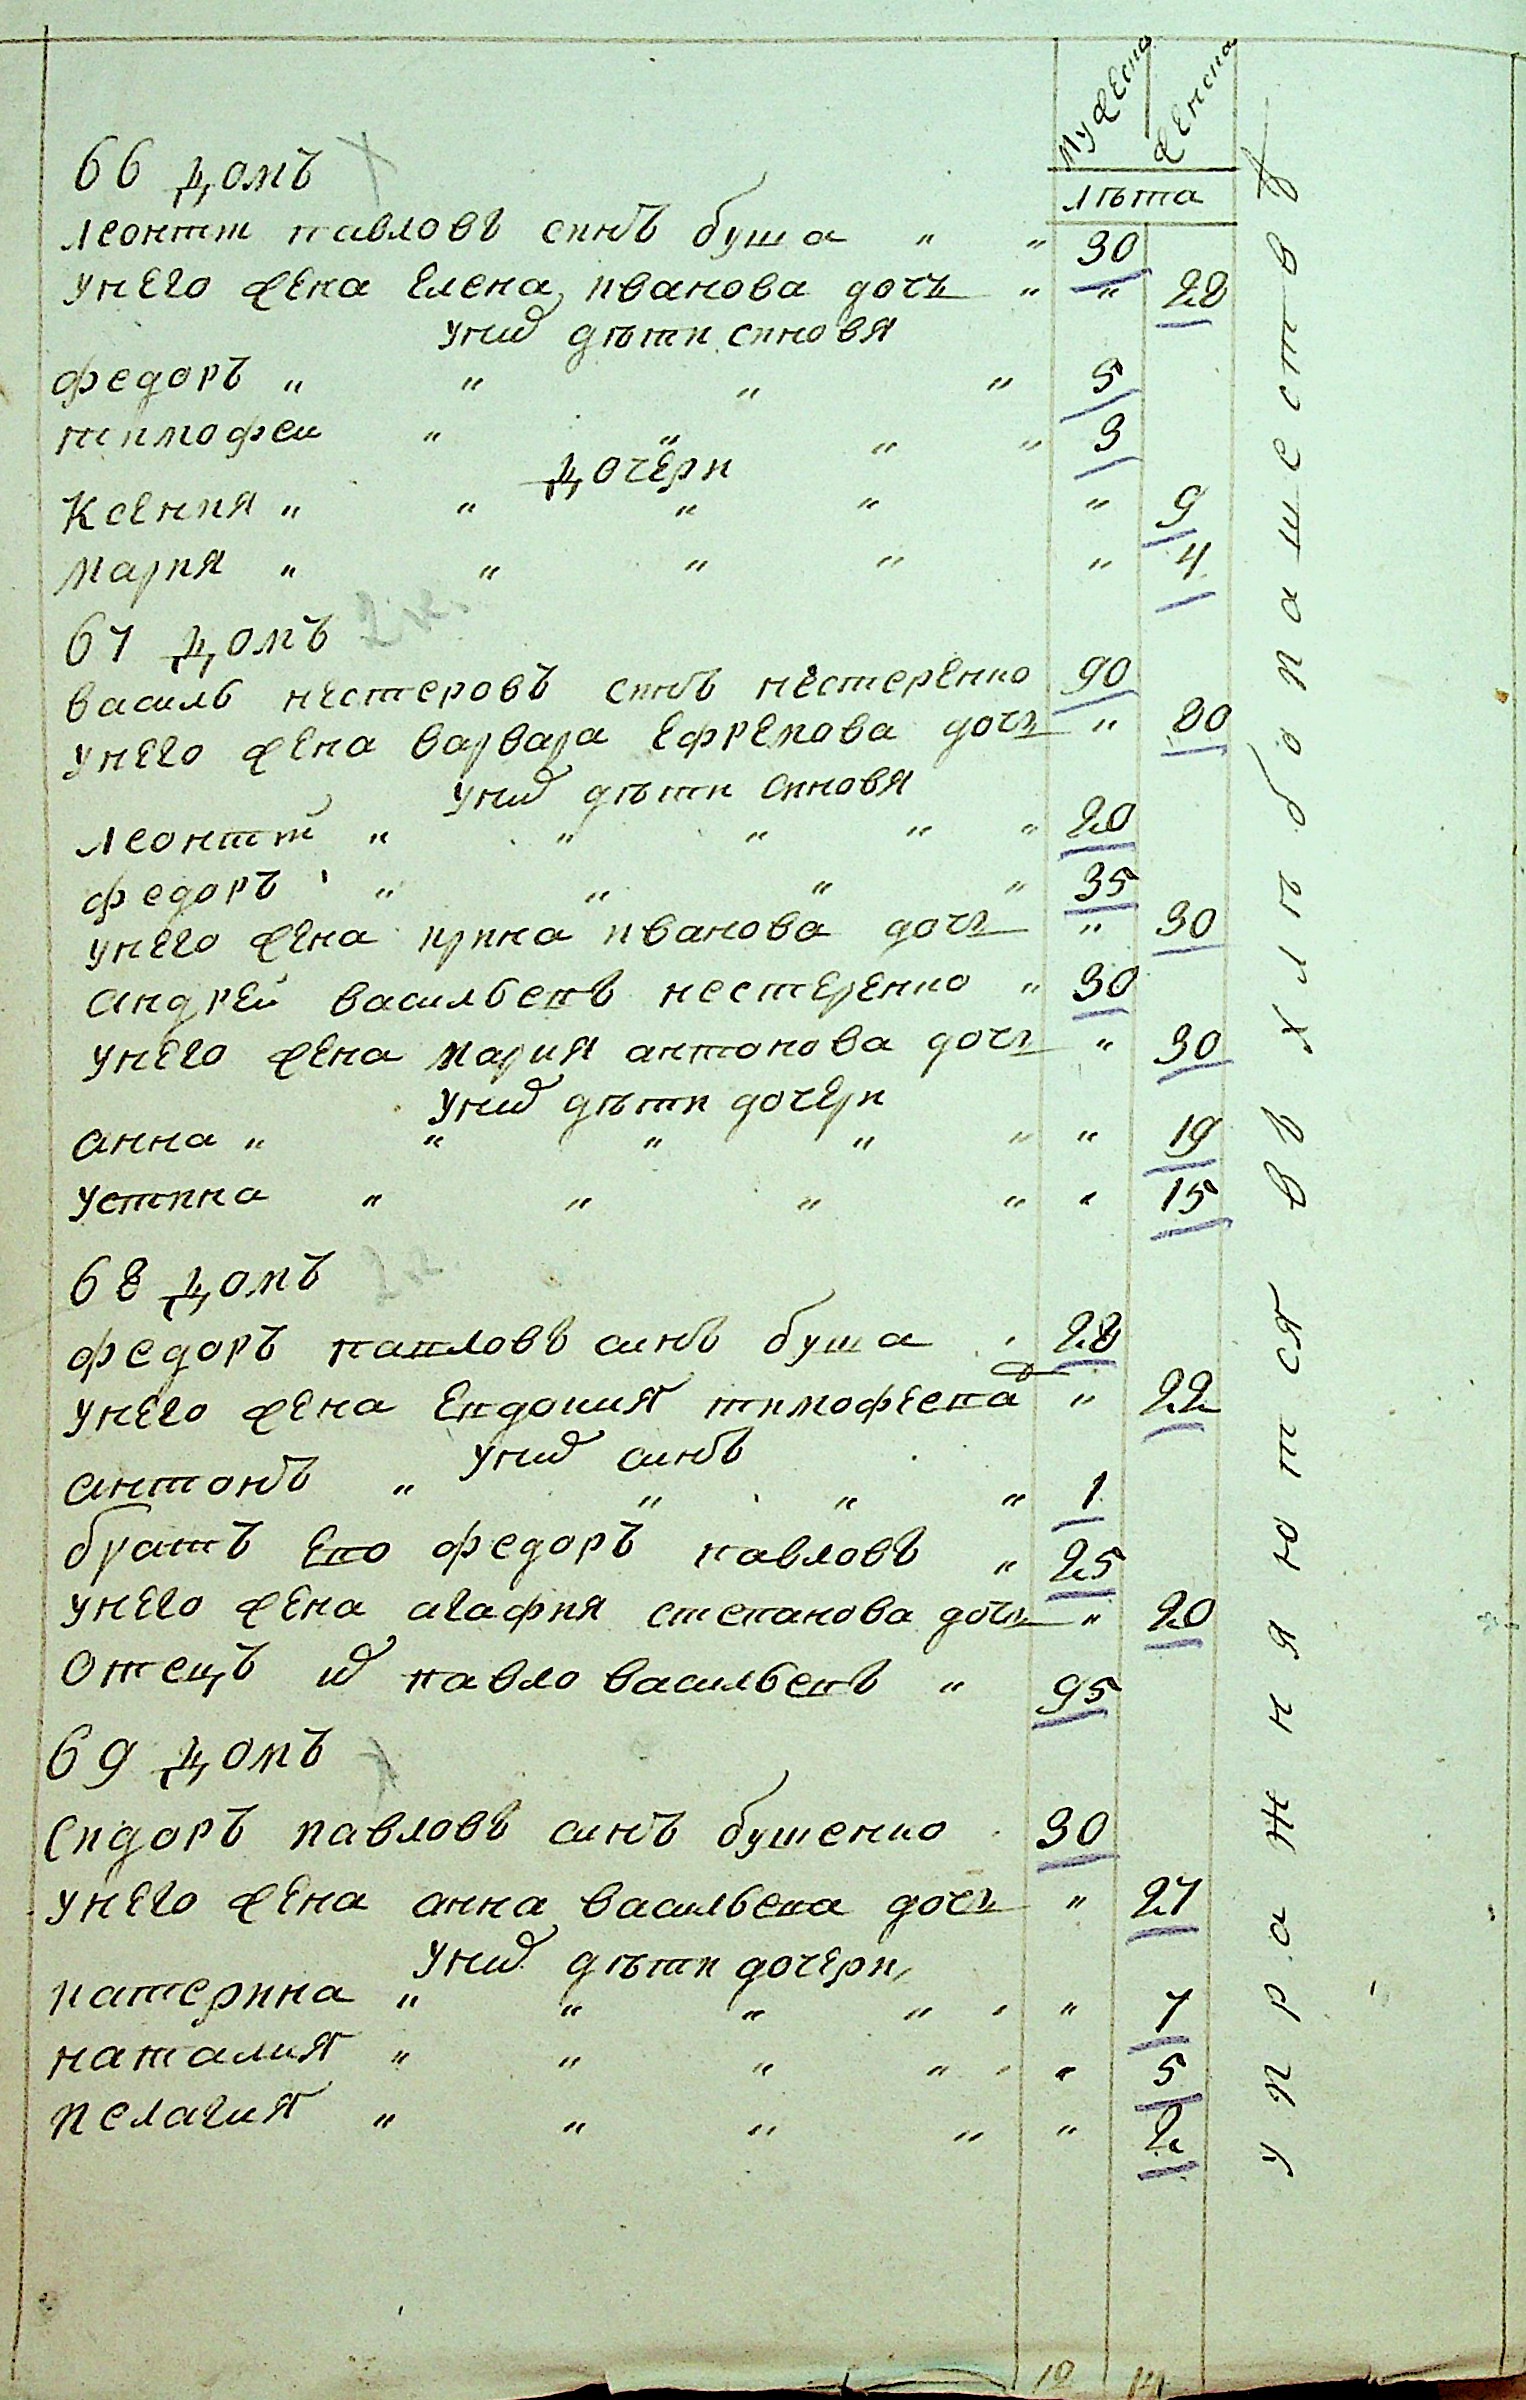 мужеска
женска
лѣта
66 домъ
леонтти павловъ синъ буша " " 30
унего жена Елена иванова дочъ " " 28
унихъ дѣти синовя
федоръ " " " " 5
тимофеи " " " " 3
дочери
Ксения " " " " " 9
Мария " " " " " 4
67 домъ
василь нестеровъ синъ нестеренко 90
унего жена варвара Ефремова дочъ " 80
унихъ дѣти синовя
леонтти " " " " " 20
федоръ " " " " 35
унего жена ирина иванова дочъ " 30
андрей васильевъ нестеренко " 30
унего жена мария антонова дочъ " 30
унихъ дѣти дочери
анна " " " " " " 19
устина " " " " " 15
68 домъ
федоръ павловъ синъ буша " 28
унего жена Евдокия тимофеева д " 22
унихъ синъ
антонъ " " " " 1
братъ Его федоръ павловъ " 25
унего жена агафия степанова дочъ " 20
Отецъ их павло васильевъ " 95
69 домъ
Сидоръ павловъ синъ бушенко 30
унего жена анна васильева дочъ " 27
унихъ дѣти дочери
катерина " " " " " 7
наталия " " " " " 5
пелагия " " " " " 2
упражняются въ хлѣбопашествѣ